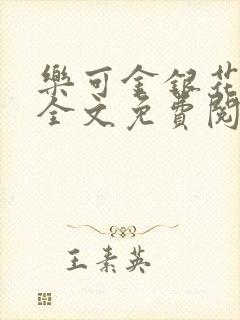 樂可金銀花
全文免費閱
王素英